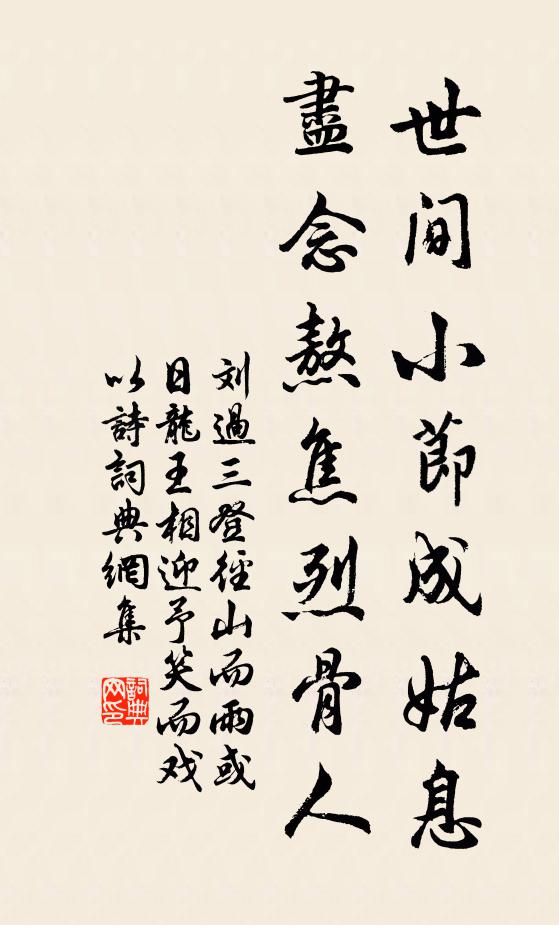 世间小節成姑息
盡念熬焦烈骨人
刘過三登徑山而雨或
日龍王相迎予笑而戏
以詩詞典網集
詞典
网印